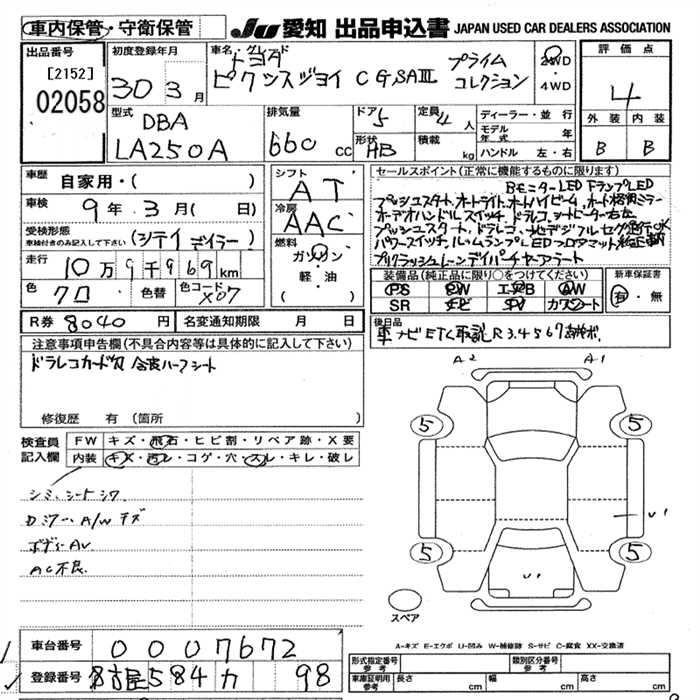 車内保管・守衛保管
JU 愛知 出品申込書 JAPAN USED CAR DEALERS ASSOCIATION
出品番号
[2152]
02058
初度登録年月
30 3月
車名・グレード
トヨタ
ピクシスジョイ C G,SAⅢ
プライム
コレクション
2WD
・4WD
評価点
4
外装 内装
B B
型式
DBA
LA250A
排気量
660 cc
ドア 5
形状 HB
定員 4人
積載 kg
ディーラー・並行
モデル年式 年
ハンドル 左・右
車歴
自家用・( )
車検
9年 3月( )
受検形態
車検付きのみ記入して下さい
(シテイ デイラー)
走行
10万9千969km
色 クロ 色替 色コード X07
シフト
AT
冷房
AAC
燃料
ガソリン
軽・油
( )
セールスポイント(正常に機能するものに限ります)
BモニターLED FランプLED
プッシュスタート,オートライト,オートハイビーム,オート格納ミラー
オーデオハンドルスイッチ,ドラレコ,シートヒーター右左
プッシュスタート,ドラレコ,地デジフルセグ
パワースイッチ,ルームランプLEDフロアマット
プリクラッシュレーンデイパチャーアラート
装備品(純正品に限り○をつけてください)
PS PW エアB AW
SR ナビ TV カワシート
新車保証書
有・無
R券 8040円 名変通知期限 月 日
後日品
車 ナビ ETC 取説 R3.4567
注意事項申告欄(不具合内容等は具体的に記入して下さい)
ドラレコカードヌ 合皮ハーフシート
修復歴 有(箇所
検査員
記入欄
FW キズ・飛石・ヒビ割・リペア跡・X要
内装 キズ・汚レ・コゲ・穴・スレ・キレ・破レ
シミ,シートシワ
Dミラー A/Wキズ
ボディーAU
AC不良.
A2 A1
5 5
5 5
U1
U1
スペア
A-キズ E-エクボ U-凹み W-補修跡 S-サビ C-腐食 XX-交換済
車台番号 0007672
登録番号 名古屋 584 カ 98
形式指定番号
参考
類別区分番号
参考
車庫証明用
参考
長さ cm
幅 cm
高さ cm